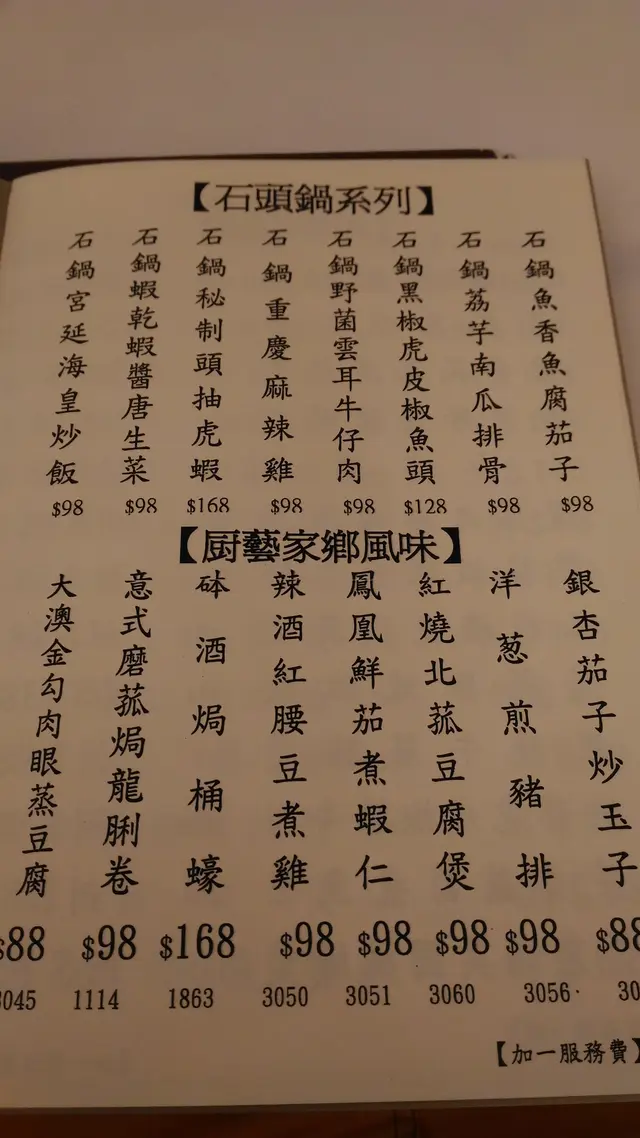 【石頭鍋系列】
石鍋魚香魚腐茄子
$98
石鍋荔芋南瓜排骨
$98
石鍋黑椒虎皮椒魚頭
$128
石鍋野菌雲耳牛仔肉
$98
石鍋重慶麻辣雞
$98
石鍋秘制頭抽虎蝦
$168
石鍋蝦乾蝦醬唐生菜
$98
石鍋宮延海皇炒飯
$98
【厨藝家鄉風味】
銀杏茄子炒玉子
$88
30
洋葱煎豬排
$98
3056
紅燒北菰豆腐煲
$98
3060
鳳凰鮮茄煮蝦仁
$98
3051
辣酒紅腰豆煮雞
$98
3050
砵酒焗桶蠔
$168
1863
意式磨菰焗龍脷卷
$98
1114
大澳金勾肉眼蒸豆腐
$88
3045
【加一服務費】